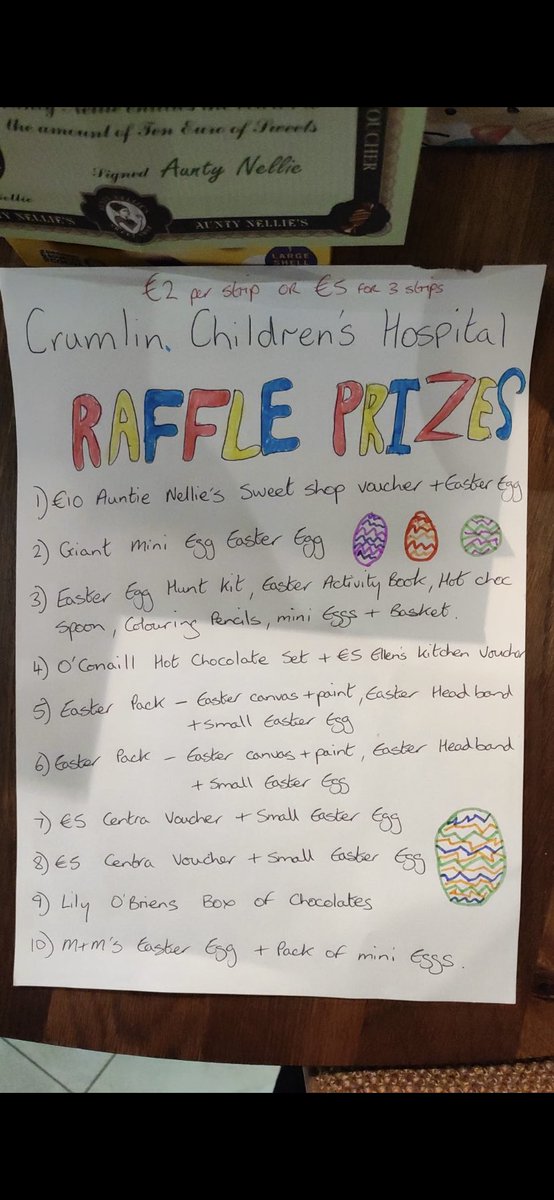 the amount of Ten Euro of Sweets
VOUCHER
Signed Aunty Nellie
AUNTY NELLIE'S
LARGE
SHELL
€2 per strip OR €5 for 3 strips
Crumlin Children's Hospital
RAFFLE PRIZES
1) €10 Auntie Nellie's Sweet shop voucher + Easter Egg
2) Giant mini Egg Easter Egg
3) Easter Egg Hunt kit, Easter Activity Book, Hot choc
spoon, Colouring Pencils, mini Eggs + Basket.
4) O'Conaill Hot Chocolate Set + €5 Ellen's kitchen Voucher
5) Easter Pack - Easter canvas + paint, Easter Headband
+ small Easter Egg
6) Easter Pack - Easter canvas + paint, Easter Headband
+ small Easter Egg
7) €5 Centra Voucher + Small Easter Egg
8) €5 Centra Voucher + Small Easter Egg
9) Lily O'Briens Box of Chocolates
10) M+M's Easter Egg + Pack of mini Eggs.